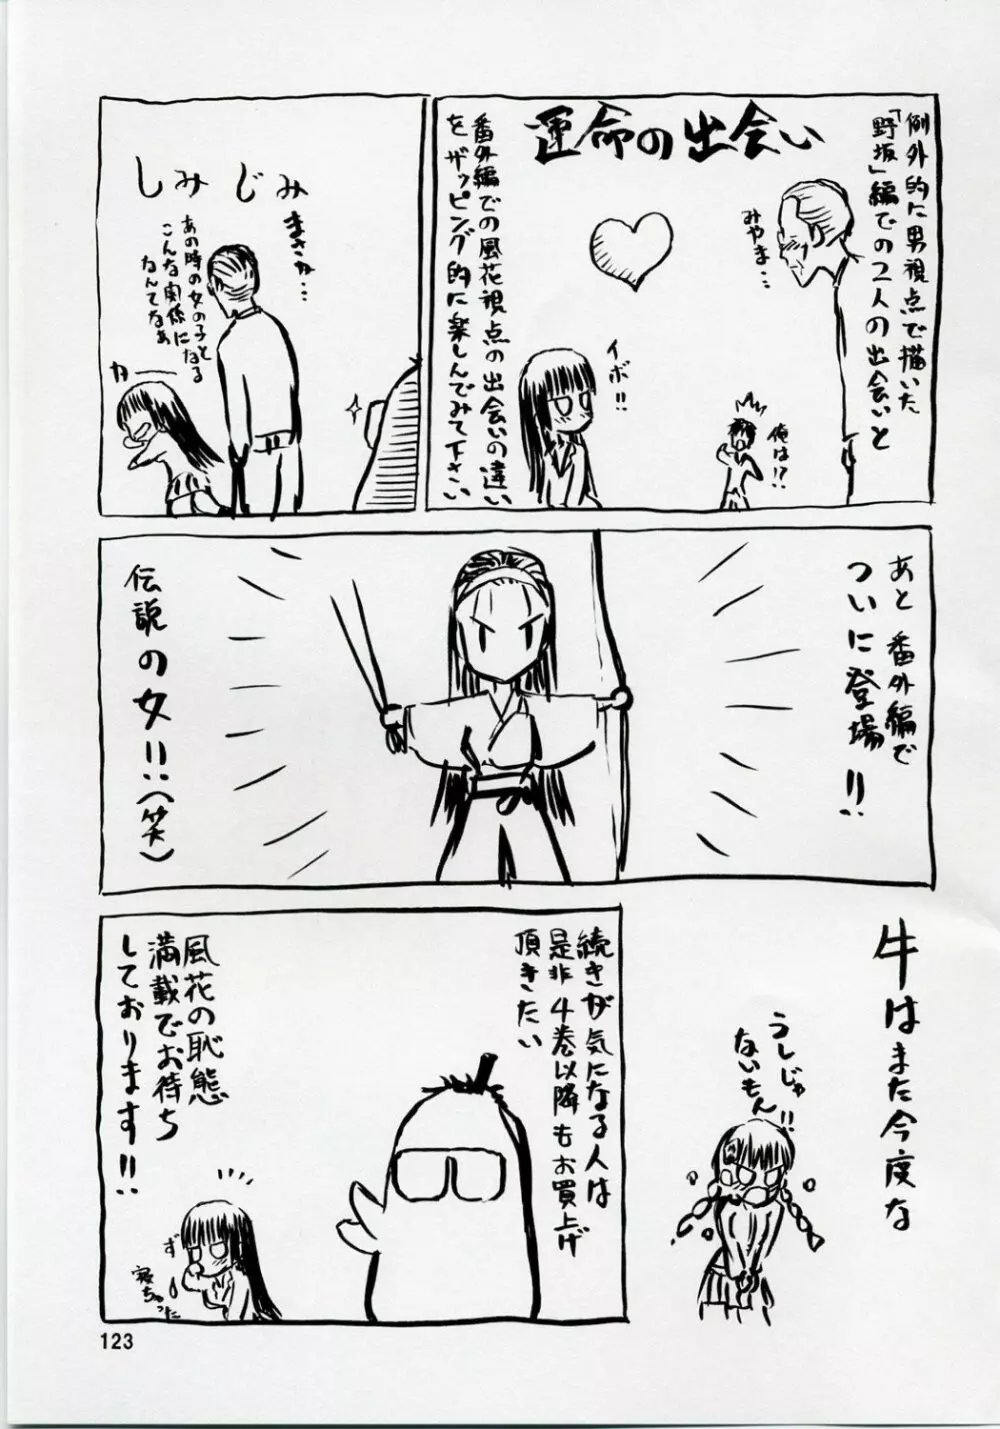 例外的に男視点で描いた
「野坂」編での2人の出会いと
運命の出会い
番外編での風花視点の出会いの違い
をザッピング的に楽しんでみて下さい
みやま…
俺は!?
イボ!!
しみじみ
まさか…
あの時の女の子と
こんな関係になる
なんてなぁ
カー
あと番外編で
ついに登場!!
伝説の女!!(笑)
牛はまた今度な
うしじゃ
ないもん!!
続きが気になる人は
是非4巻以降もお買上げ
頂きたい
風花の恥態
満載でお待ち
しております!!
ず
寝ちゃった
123